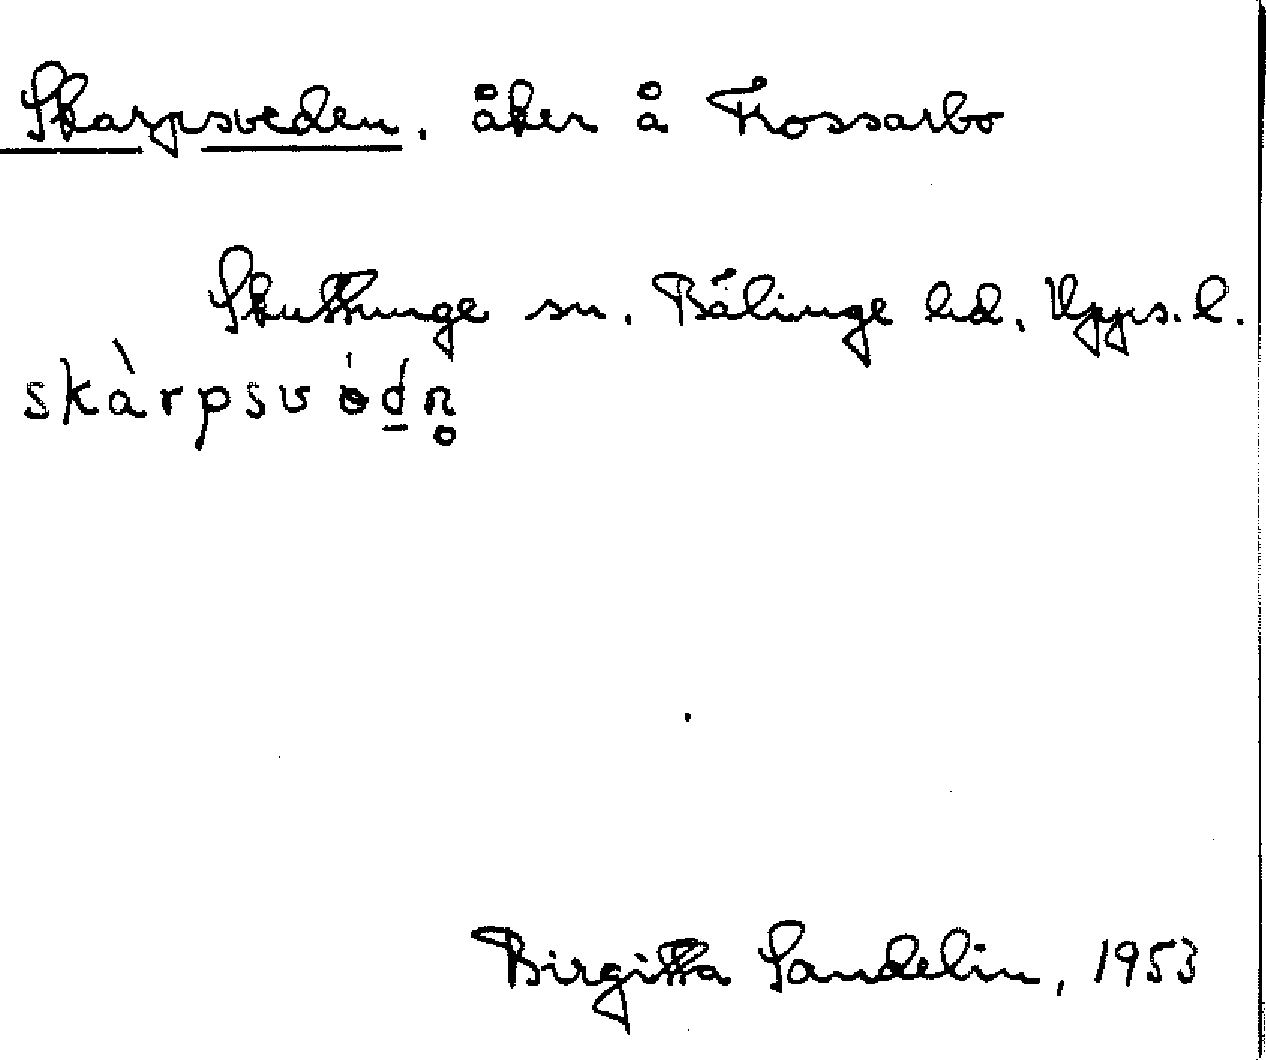 Skarpsveden. åker å Trossarbo
Skuttunge sn. Bälinge hd. Upps. l.
skàrpsvèdn̥
Birgitta Sandelin, 1953